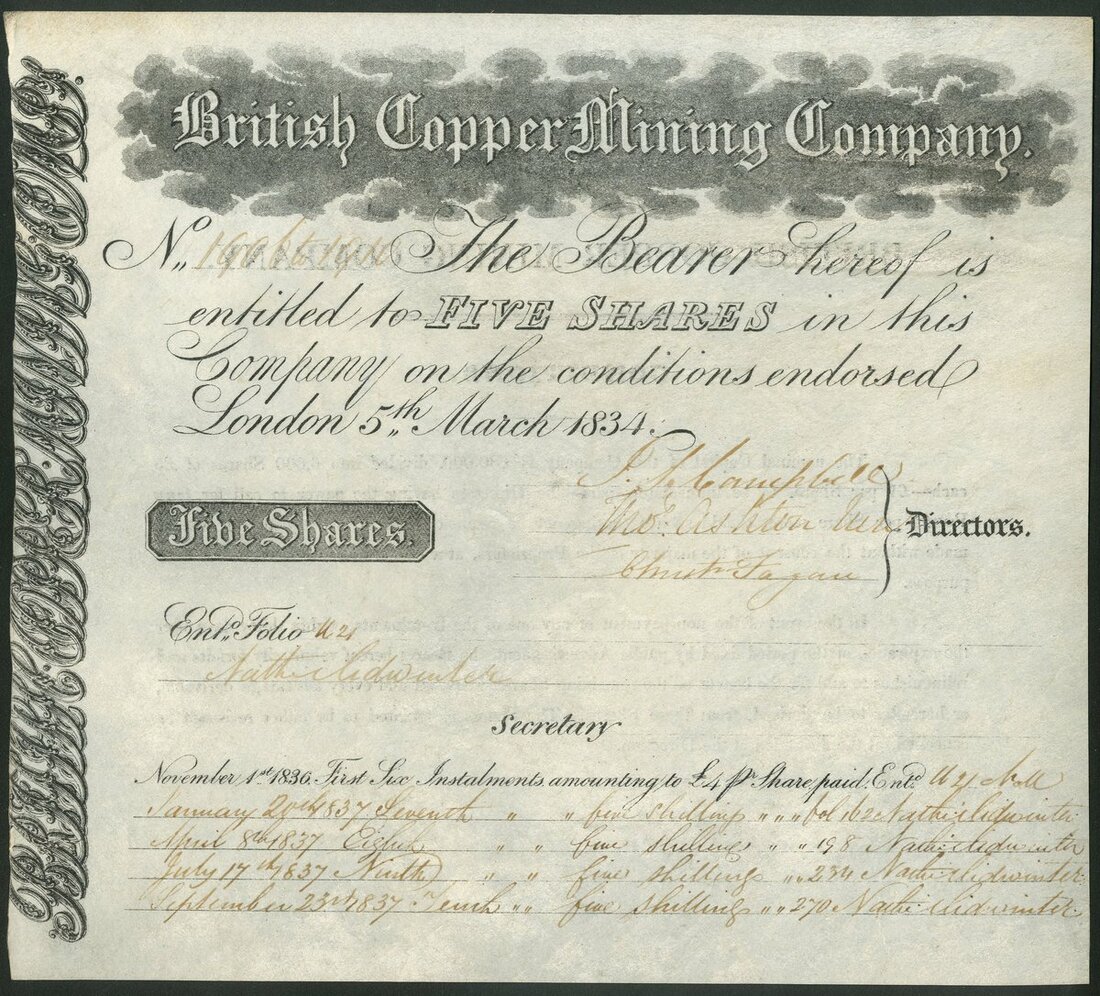 British Copper Mining Company.
No. The Bearer hereof is
entitled to FIVE SHARES in this
Company on the conditions endorsed
London 5th March 1834.
Campbell
Thos. Ashton
Five Shares.
Directors.
Christr. Fagan
Entd. Folio
Nathl. Midwinter
Secretary
November 1st 1836. First Six Instalments amounting to £4 pr Share paid. Entd.
January 1837 Seventh " " five shillings " " fol 162 Nathl. Midwinter
April 8th 1837 Eighth " " five shillings " " 198 Nathl. Midwinter
July 17th 1837 Ninth " " five shillings " " 234 Nathl. Midwinter
September 23rd 1837 Tenth " " five shillings " " 270 Nathl. Midwinter
BRITISH COPPER MINING COMP.